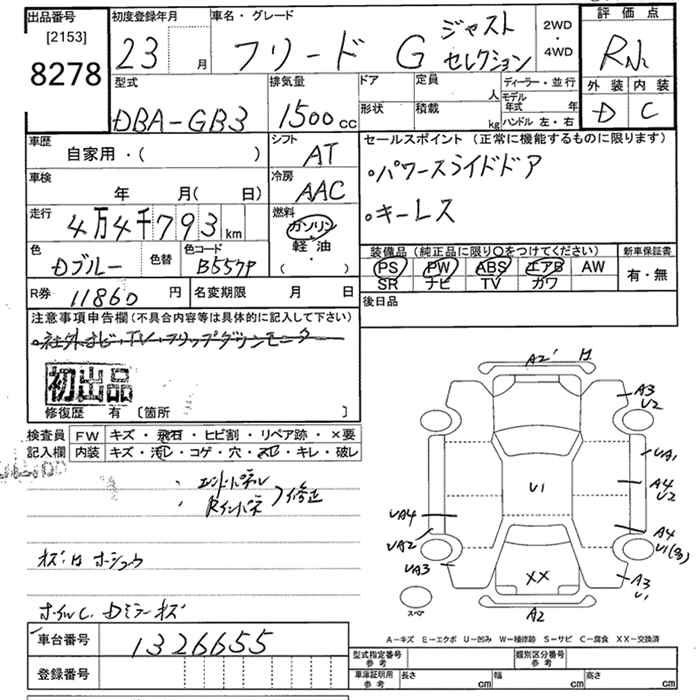 出品番号
[2153]
8278
初度登録年月
23 月
車名・グレード
フリード G ジャスト
セレクション
2WD
・
4WD
評価点
R
外装 内装
D C
型式
DBA-GB3
排気量
1500cc
ドア
形状
定員 人
積載 kg
ディーラー・並行
モデル年式 年
ハンドル 左・右
車歴
自家用・( )
シフト
AT
車検
年 月( 日)
冷房
AAC
走行
4万4千793km
燃料
ガソリン
軽油
・( )
色
Dブルー
色替
色コード
B557P
R券 11860円
名変期限 月 日
セールスポイント(正常に機能するものに限ります)
・パワースライドドア
・キーレス
装備品(純正品に限り○をつけてください)
PS PW ABS エアB AW
SR ナビ TV カワ
新車保証書
有・無
後日品
注意事項申告欄(不具合内容等は具体的に記入して下さい)
・社外ナビ・TV・フリップダウンモニター
初出品
修復歴 有 [箇所 ]
検査員
記入欄
FW キズ・飛石・ヒビ割・リペア跡・×要
内装 キズ・汚レ・コゲ・穴・スレ・キレ・破レ
・エンドパネル
・Rインパネ
修正
ホイルC、Dミラーキズ
A2 H
A3
U2
UA1
A4
U2
U1
UA4
UA2
UA3
A4
U1(多)
XX
A3
U1
スペア
A2
A-キズ E-エクボ U-凹み W-補修跡 S-サビ C-腐食 XX-交換済
車台番号
1326655
登録番号
型式指定番号
参考
類別区分番号
参考
車庫証明用
参考
長さ cm
幅 cm
高さ cm